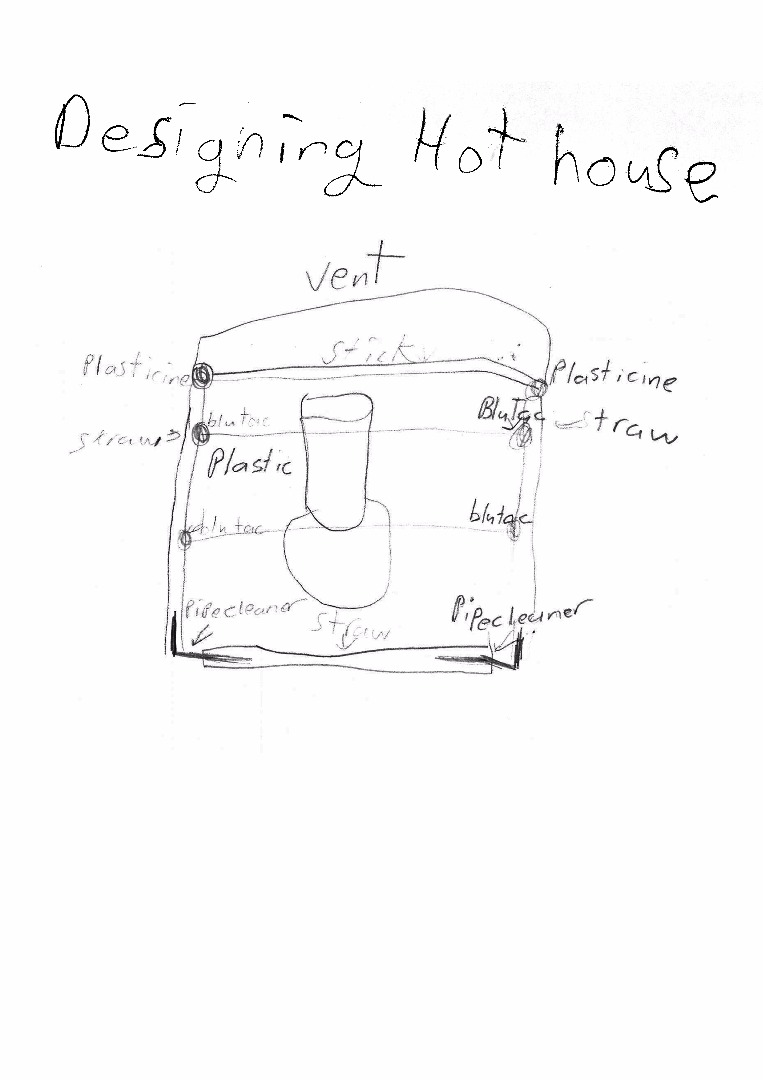 Designing Hot house
vent
stick
Plasticine
Plasticine
blutac
BluTac
straw
straw
Plastic
blutac
blutac
Pipecleaner
straw
Pipecleaner